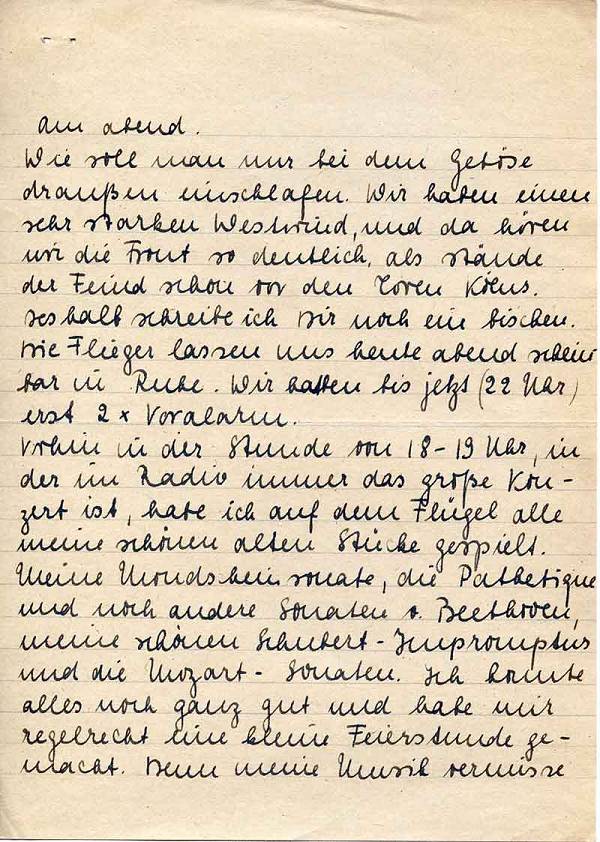 Am abend.
Wie soll man nur bei dem Getöse
draußen einschlafen. Wir haben einen
sehr starken Westwind, und da hören
wir die Front so deutlich, als stände
der Feind schon vor den Toren Kölns.
Deshalb schreibe ich Dir noch ein bischen.
Die Flieger lassen uns heute abend schein
bar in Ruhe. Wir hatten bis jetzt (22 Uhr)
erst 2 x Voralarm.
Vorhin in der Stunde von 18-19 Uhr, in
der im Radio immer das große Kon-
zert ist, habe ich auf dem Flügel alle
meine schönen alten Stücke gespielt.
Meine Mondscheinsonate, die Pathetique
und noch andere Sonaten v. Beethoven,
meine schönen Schubert-Impromptus
und die Mozart-Sonaten. Ich konnte
alles noch ganz gut und habe mir
regelrecht eine kleine Feierstunde ge-
macht. Denn meine Musik vermisse